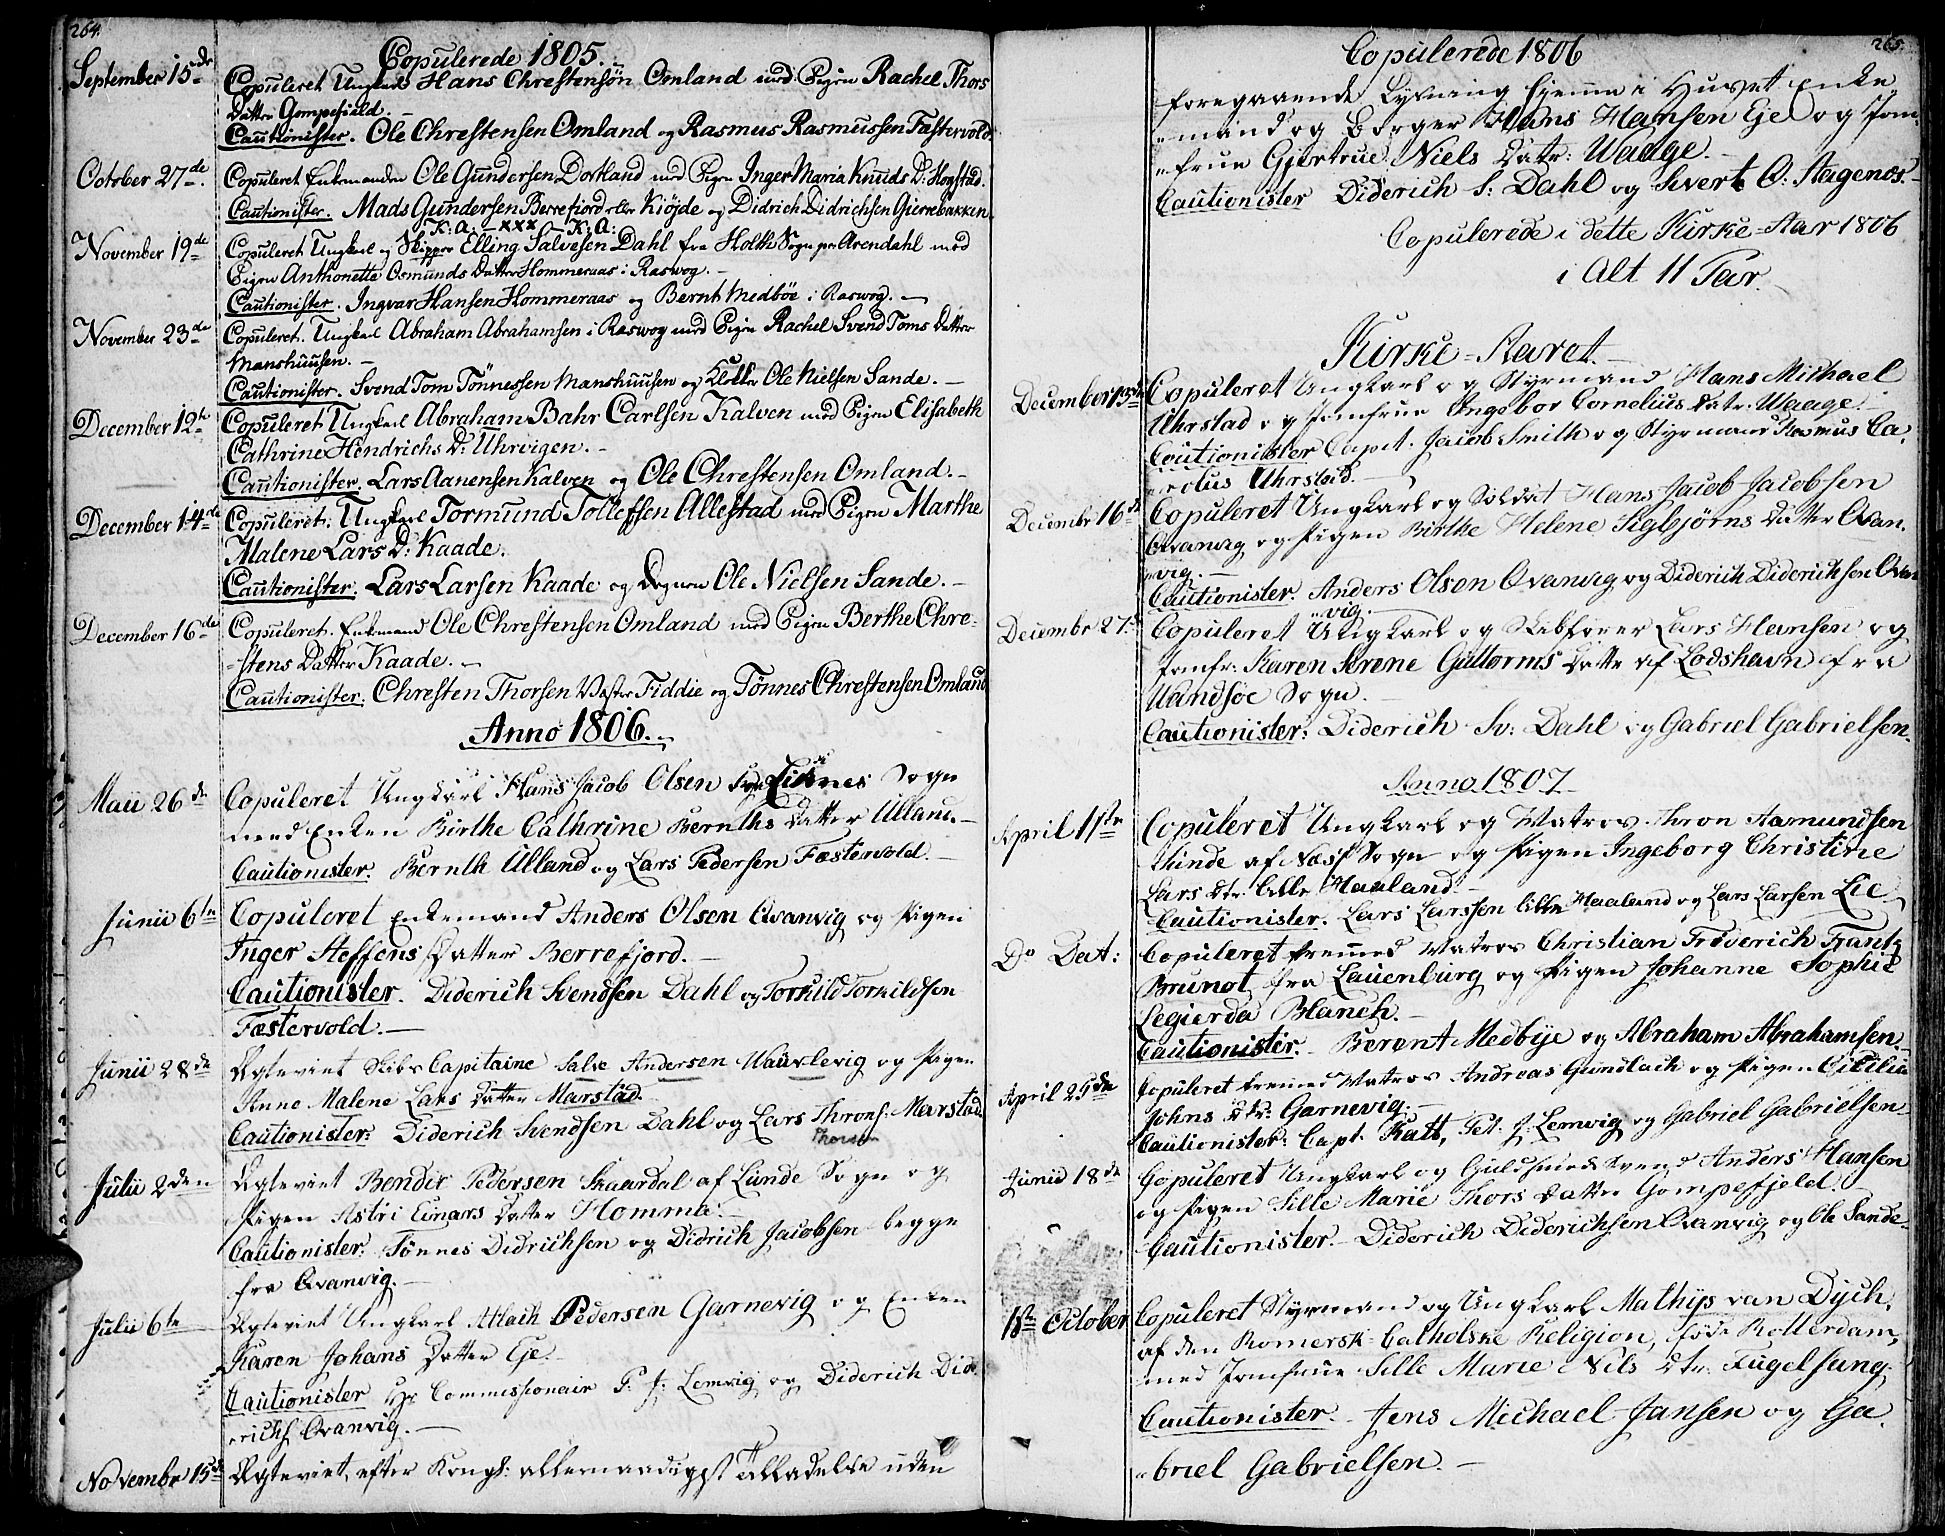 264.
Copulerede 1805.
September 15de Copuleret Ungkarl Hans Chrestensøn Omland med Pigen Rachel Thors
Datter Gompefield.
Cautionister. Ole Chrestensen Omland og Rasmus Rasmussen Fæstervold
October 27de. Copuleret Enkemanden Ole Gundersen Dortland med Pigen Inger Maria Knuds D: Hogstad.
Cautionister. Mads Gundersen Berrefiord eller Kiøjde og Didrich Didrichsen Gierrebakken.
K: A: – xxx – K: A:
November 19de Copuleret Ungkarl og Skipper Elling Salvesen Dahl fra Holth Sogn pr Arendahl med
Pigen Anthonette Osmunds Datter Hommeraas i Raswog. –
Cautionister. Ingvar Hansen Hommeraas og Bernt Medbøe i Raswog. –
November 23de Copuleret. Ungkarl Abraham Abrahamsen i Raswog med Pigen Rachel Svend Toms Datter
Manshuusen. –
Cautionister. Svend Tom Tönnessen Manshuusen og Klokker Ole Nielsen Sande. –
December 12te Copuleret Ungkarl Abraham Bahr Carlsen Kalven med Pigen Elisabeth
Cathrine Hendrichs D: Uhrvigen. –
Cautionister. Lars Aanensen Kalven og Ole Chrestensen Omland. –
December 14de Copuleret: Ungkarl Tormund Tolleffsen Allestad med Pigen Marthe
Malene Lars D: Kaade.
Cautionister. Lars Larsen Kaade og Degnen Ole Nielsen Sande. –
December 16de Copuleret. Enkemand Ole Chrestensen Omland med Pigen Berthe Chre-
-stens Datter Kaade. –
Cautionister: Chresten Thorsen Vester Fiddie og Tönnes Chrestensen Omland
Anno 1806.
Maii 26de Copuleret Ungkarl Hans Jacob Olsen fra Lisnes Sogn
med Enken Birthe Cathrine Bernths Datter Ulland. –
Cautionister. Bernth Ulland og Lars Pedersen Fæstervold. –
Junii 6te Copuleret Enkemand Anders Olsen Qvanvig og Pigen
Inger Steffens Datter Berrefjord. –
Cautionister. Diderich Svendsen Dahl og Torkild Torkildsen
Fæstervold. –
Junii 28de Ægteviet Skibs Capitaine Salve Andersen Waurlevig og Pigen
Anne Malene Lars Datter Marstad.
Cautionister: Diderich Svendsen Dahl og Lars Throns: Marstad
Thorsen
Julii 2den Ægteviet Bendix Pedersen Skaardal af Lunde Sogn og
Pigen Astri Einars Datter Homme. –
Cautionister. Tönnes Didrichsen og Didrich Jacobsen begge
fra Qvanvig. –
Julii 6te Ægteviet Ungkarl Atlach Pedersen Garnevig og Enken
Karen Johans Datter Eje. –
Cautionister Hr Commissionair P: J: Lemvig og Diderich Dide-
richs: Qvanvig. –
November 15de Ægteviet, efter Kongl: allernaadigst Tilladelse uden
265.
Copulerede 1806
foregaaende Lysning hjemme i Huset Enke-
mand og Borger Hans Hansen Eje og Jom-
frue Gjertrue Niels Datr: Waage. –
Cautionister Diderich S: Dahl og Sivert O: Aagenæs –
Copulerede i dette Kirke-Aar 1806
i Alt 11 Par.
Kirke-Aaret. –
December 13de Copuleret Ungkarl og Styrmand Hans Michael
Uhrstad og Jomfrue Ingebor Cornelius Datr. Waage. –
Cautionister Capit. Jacob Smith og Styrmand Rasmus Ca-
rolus Uhrstad. –
December 16de Copuleret Ungkarl og Soldat Hans Jacob Jacobsen
Qvanvig og Pigen Birthe Helene Sigbjørns Datter Qvan-
vig. –
Cautionister. Anders Olsen Qvanvig og Diderich Diderichsen Qvan-
vig. –
Decembr 27de Copuleret Ungkarl og Skibsfører Lars Hansen og
Jomfr: Karen Serene Guttorms Datter af Lodshavn fra
Wandsøe Sogn. –
Cautionister: Diderich Sv: Dahl og Gabriel Gabrielsen.
Anno 1807
April 1ste Copuleret Ungkarl og Matros Thron Aamundsen
Stinde af Næss Sogn og Pigen Ingeborg Christine
Lars Dtr. Lille Haaland. –
Cautionister. Lars Larssen lille Haaland og Lars Larsen Lie
Do Dat: Copuleret fremmed Matros Christian Friderich Frantz
Brunot fra Lauenburg og Pigen Johanne Sophie
Legierda Blanch. –
Cautionister. Berent Medbye og Abraham Abrahamsen. –
April 29de Copuleret fremmed Matros Andreas Gundlach og Pigen Cicilia
Johns Dtr: Garnevig. –
Cautionister: Capt. Katt, Pet. J: Lemvig og Gabriel Gabrielsen –
Junii 18de Copuleret Ungkarl og Guldsmed Svend Anders Hansen
og Pigen Sille Marie Thors Datter Gompefjeld. –
Cautionister. – Diderich Diderichsen Qvanvig og Ole Sande –
18de October Copuleret Styrmand og Ungkarl Mathijs van Dÿch,
af den Romersk-Catholske Religion, fød i Rotterdam,
med Jomfrue Sille Marie Nils Dtr. Fuglesang.
Cautionister. – Jens Michael Jansen og Ga-
briel Gabrielsen. –